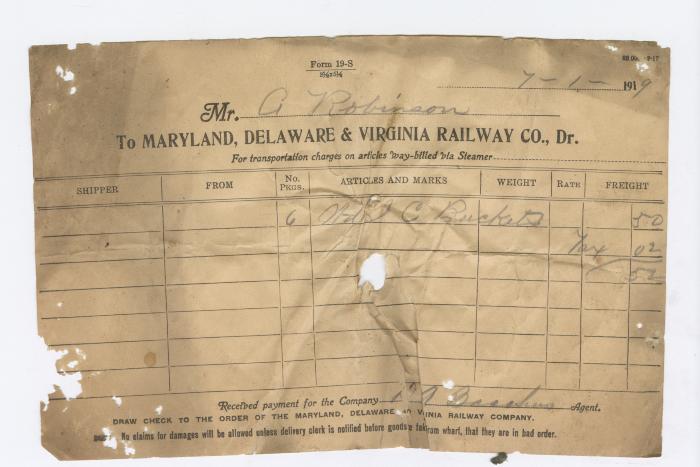 Form 19-S
7-1-1919
Mr. A Robinson
To MARYLAND, DELAWARE & VIRGINIA RAILWAY CO., Dr.
For transportation charges on articles way-billed via Steamer
SHIPPER FROM No. PKGS. ARTICLES AND MARKS WEIGHT RATE FREIGHT
6 C Buckets 50
Tax 02
52
Received payment for the Company Agent.
DRAW CHECK TO THE ORDER OF THE MARYLAND, DELAWARE INIA RAILWAY COMPANY.
No claims for damages will be allowed unless delivery clerk is notified before goods from wharf, that they are in bad order.